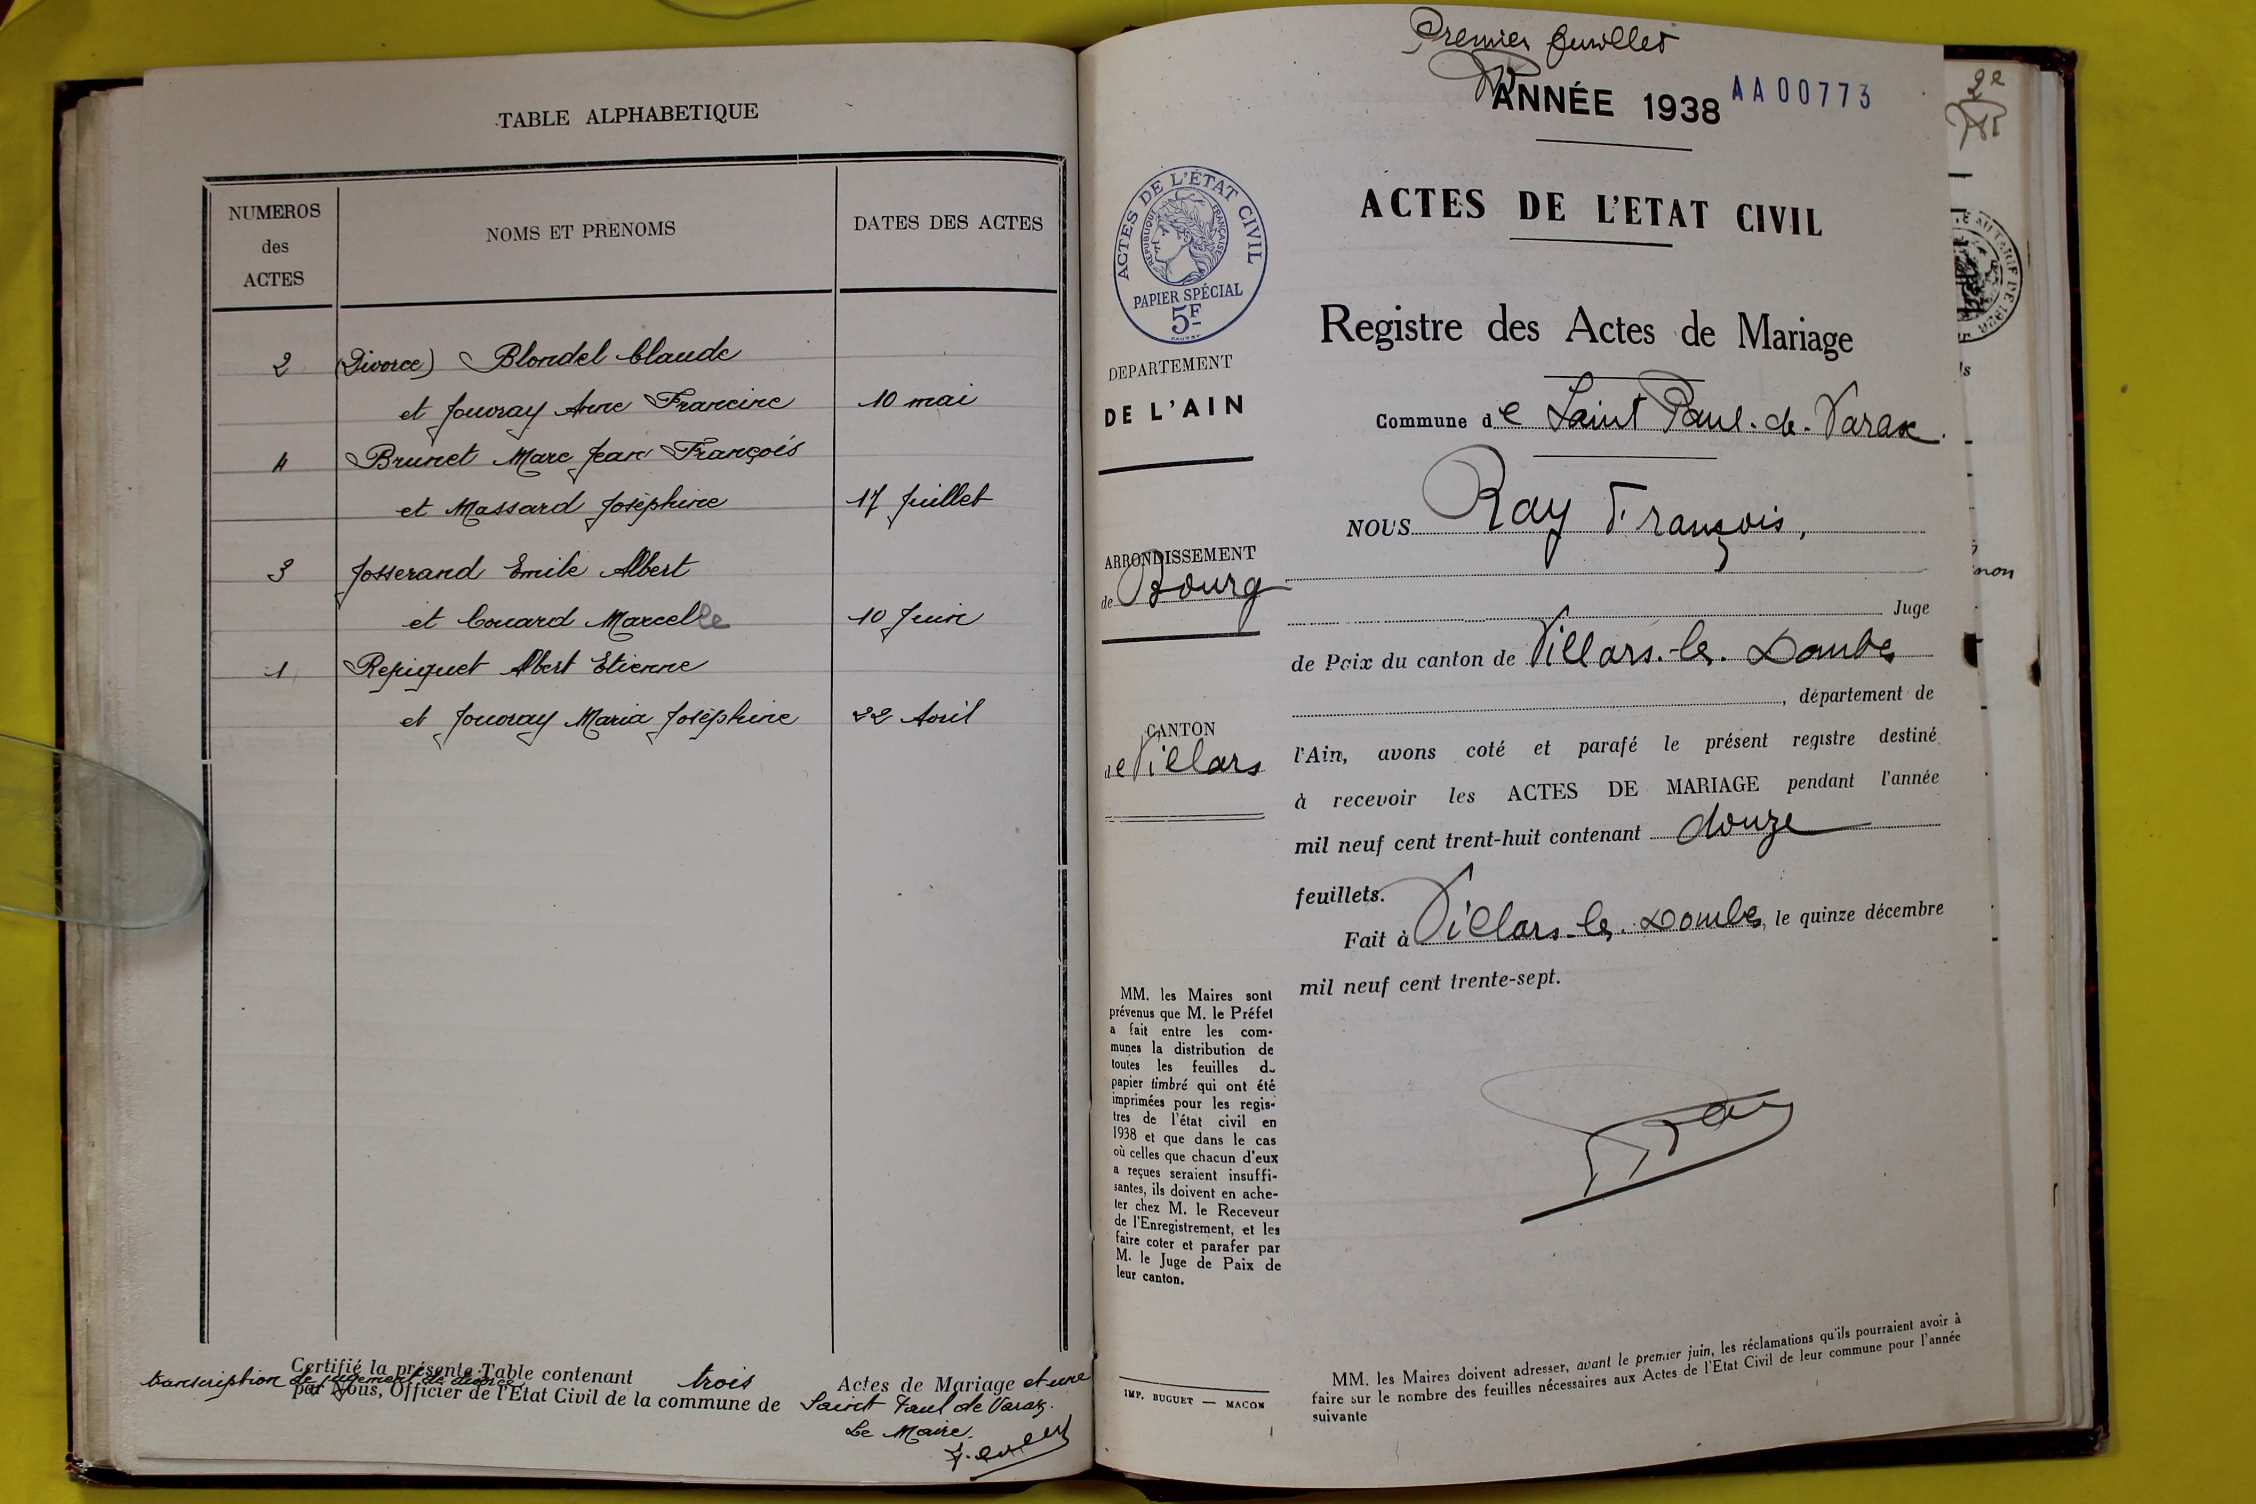 TABLE ALPHABETIQUE
NUMEROS
des
ACTES
NOMS ET PRENOMS
DATES DES ACTES
2 (Divorce) Blondel Claude
et Jouvray Anne Francine 10 mai
4 Brunet Marc Jean François
et Massard Joséphine 17 Juillet
3 Josserand Emile Albert
et Couard Marcelle 10 Juin
1 Repiquet Albert Etienne
et Jouvray Maria Joséphine 22 Avril
Certifié la présente Table contenant trois Actes de Mariage et une
transcription de jugement de divorce,
par Nous, Officier de l'Etat Civil de la commune de Saint Paul de Varax.
Le Maire.
Premier feuillet
ANNÉE 1938 AA00773
ACTES DE L'ÉTAT CIVIL
REPUBLIQUE FRANÇAISE
PAPIER SPÉCIAL
5F
DEPARTEMENT
DE L'AIN
ARRONDISSEMENT
de Bourg
CANTON
de Villars
MM. les Maires sont
prévenus que M. le Préfet
a fait entre les com-
munes la distribution de
toutes les feuilles du
papier timbré qui ont été
imprimées pour les regis-
tres de l'état civil en
1938 et que dans le cas
où celles que chacun d'eux
a reçues seraient insuffi-
santes, ils doivent en ache-
ter chez M. le Receveur
de l'Enregistrement, et les
faire coter et parafer par
M. le Juge de Paix de
leur canton.
IMP. BUGUET — MACON
ACTES DE L'ETAT CIVIL
Registre des Actes de Mariage
Commune de Saint Paul-de-Varax.
NOUS Ray François,
Juge
de Paix du canton de Villars-les-Dombes
, département de
l'Ain, avons coté et parafé le présent registre destiné
à recevoir les ACTES DE MARIAGE pendant l'année
mil neuf cent trent-huit contenant douze
feuillets.
Fait à Villars-les-Dombes, le quinze décembre
mil neuf cent trente-sept.
Ray
MM. les Maires doivent adresser, avant le premier juin, les réclamations qu'ils pourraient avoir à
faire sur le nombre des feuilles nécessaires aux Actes de l'Etat Civil de leur commune pour l'année
suivante
22